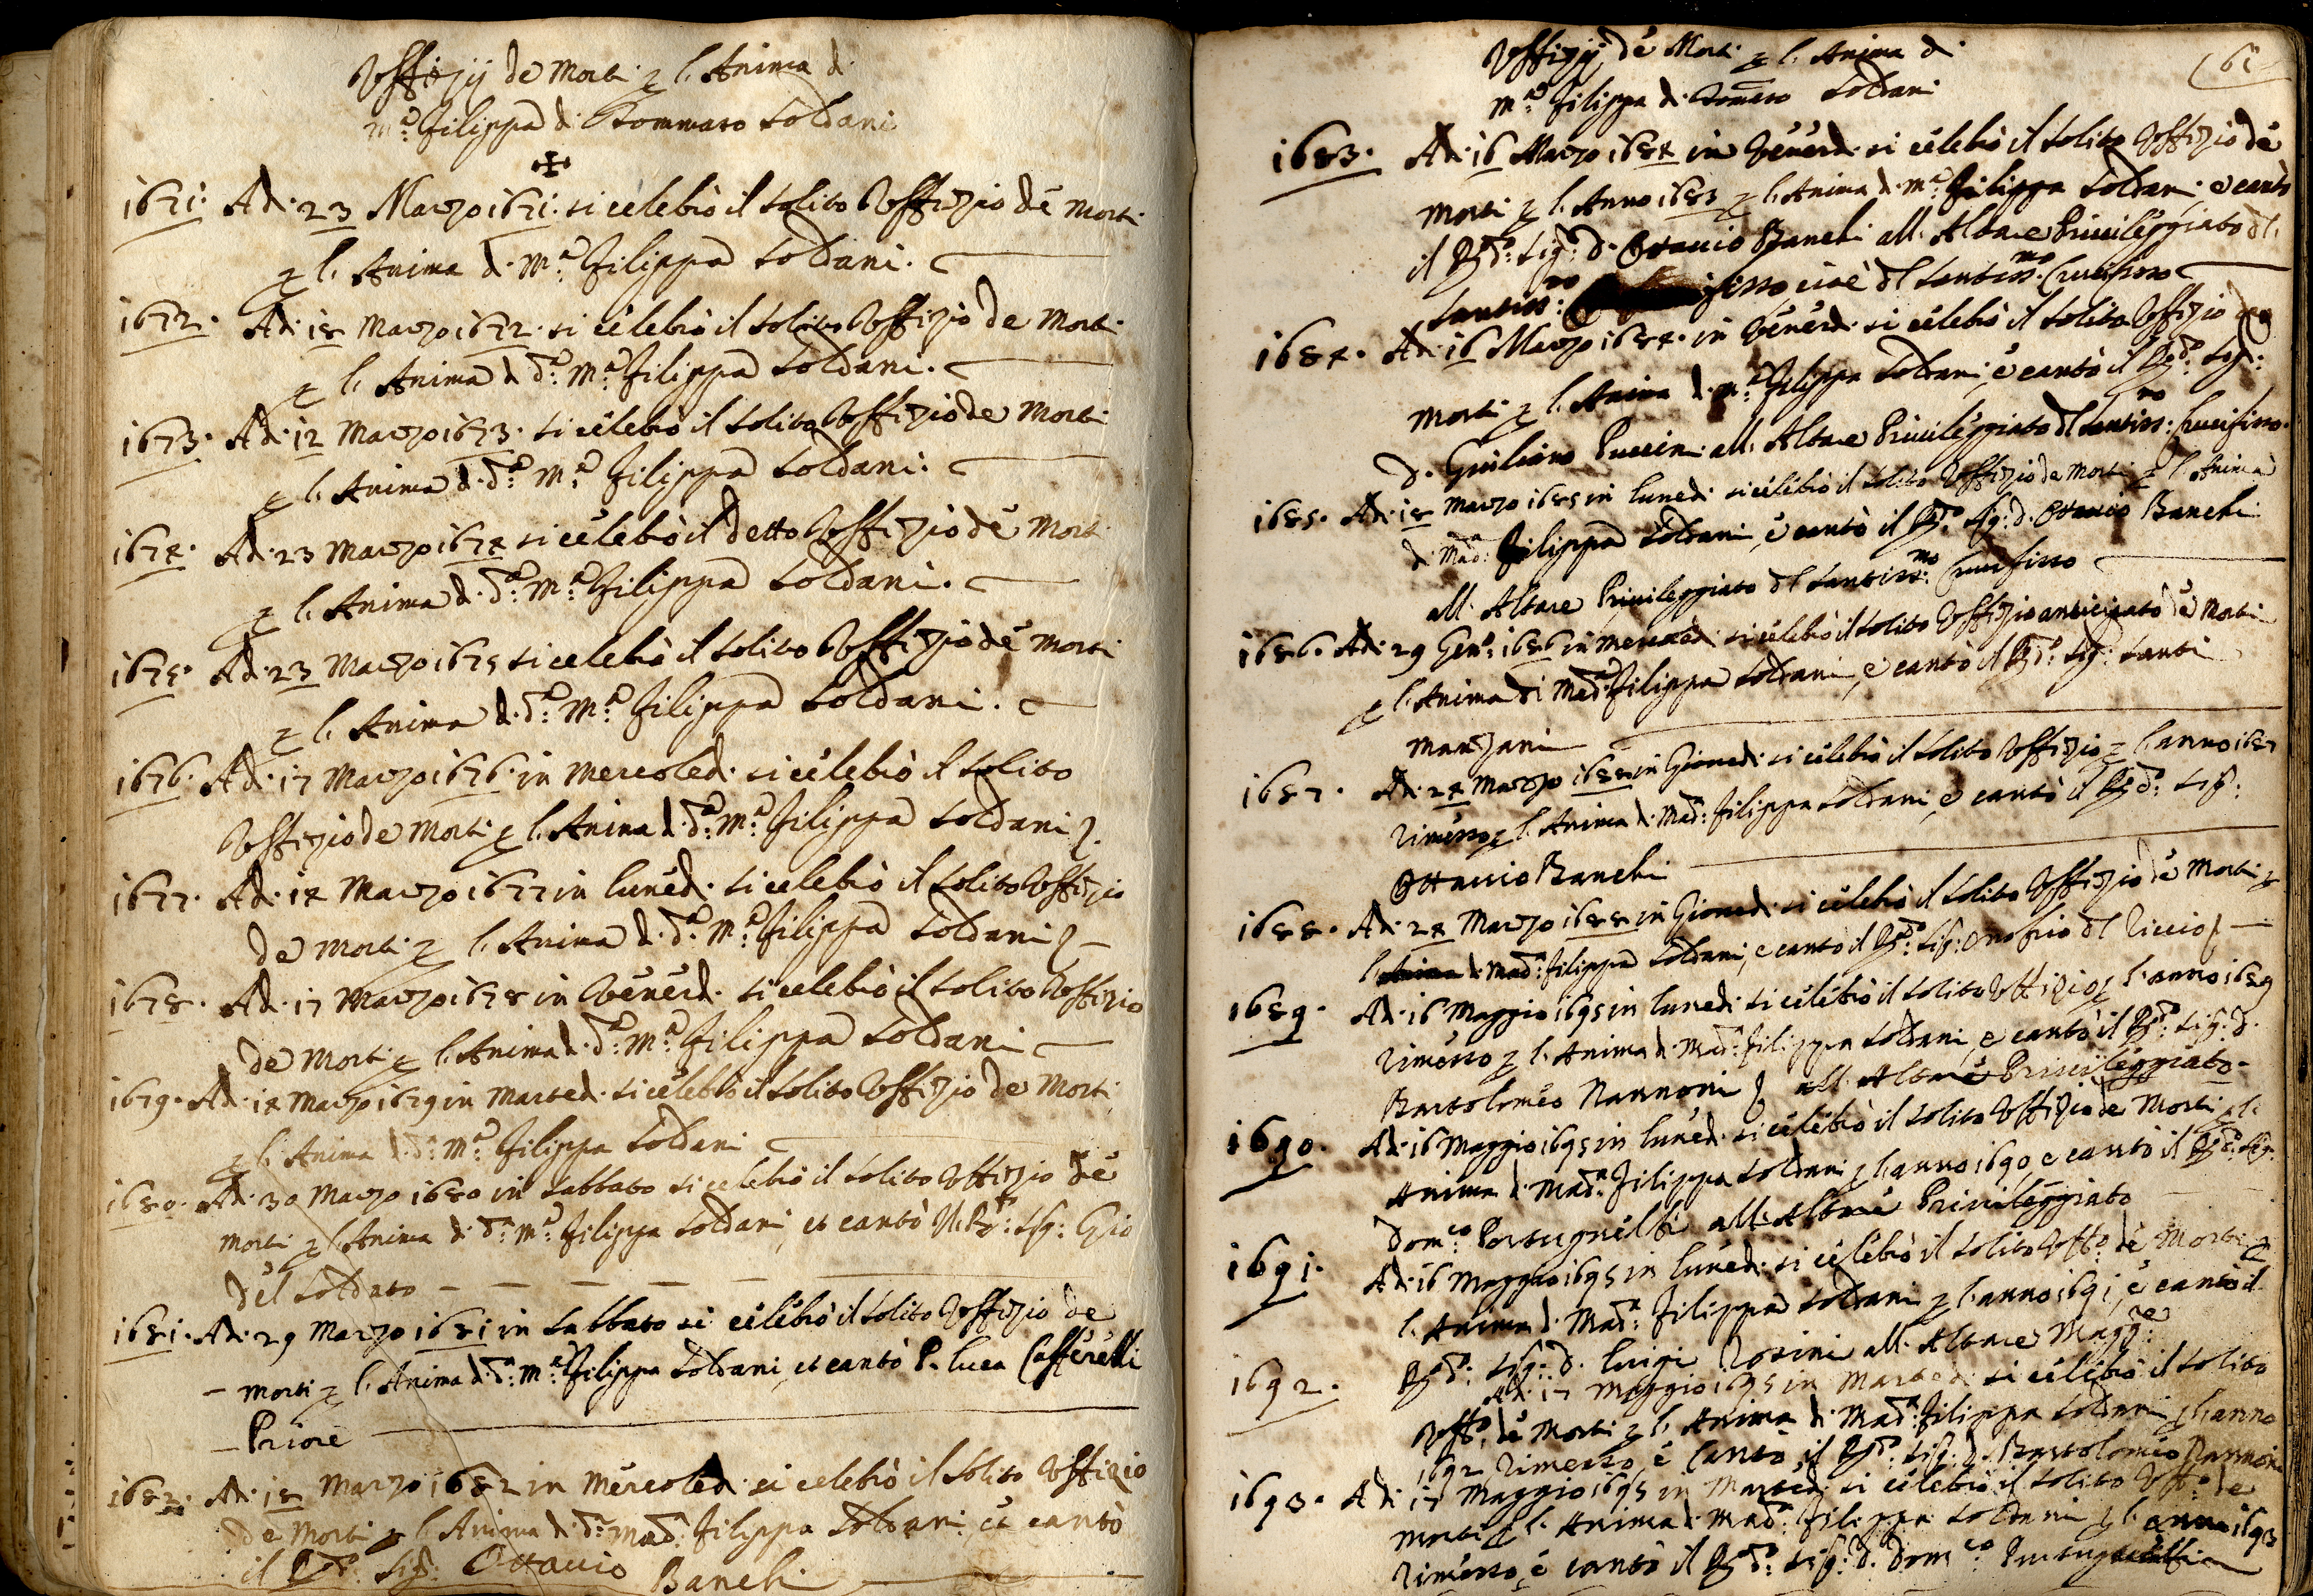 Uffizij de Morti p l. Anima di
M.a Filippa di Tommaso Soldani
1671. Adi 23 Marzo 1671. si celebrò il solito Uffizio de Morti
p l. Anima di M.a Filippa Soldani.
1672. Adi 18 Marzo 1672. si celebrò il solito Uffizio de Morti
p l. Anima di d.a M.a Filippa Soldani.
1673. Adi 12 Marzo 1673. si celebrò il solito Uffizio de Morti
p l. Anima di d.a M.a Filippa Soldani.
1674. Adi 23 Marzo 1674 si celebrò il detto Uffizio de Morti
p l. Anima di d.a M.a Filippa Soldani.
1675. Adi 23 Marzo 1675 si celebrò il solito Uffizio de Morti
p l. Anima di d.a M.a Filippa Soldani.
1676. Adi 17 Marzo 1676. in Mercoledi si celebrò il solito
Uffizio de Morti p l. Anima di d.a M.a Filippa Soldani
1677. Adi 14 Marzo 1677 in lunedi si celebrò il solito Uffizio
de Morti p l. Anima di d.a M.a Filippa Soldani
1678. Adi 17 Marzo 1678 in Venerdi si celebrò il solito Uffizio
de Morti p l. Anima di d.a M.a Filippa Soldani
1679. Adi 14 Marzo 1679 in Martedi si celebrò il solito Uffizio de Morti
p l. Anima di d.a M.a Filippa Soldani
1680. Adi 30 Marzo 1680 in sabbato si celebrò il solito Uffizio de
Morti p l. Anima di d.a M.a Filippa Soldani, et cantò il R.do Sig: Gio
del Soldato
1681. Adi 29 Marzo 1681 in sabbato si celebrò il solito Uffizio de
Morti p l. Anima di d.a M.a Filippa Soldani, et cantò P. Luca Cafferelli
Priore
1682. Adi 18 Marzo 1682 in Mercoledi si celebrò il solito Uffizio
de Morti p l. Anima di d.a Mad.a Filippa Soldani, et cantò
il R.do Sig: Ottavio Banchi
61
Uffizij de Morti p l. Anima di
M.a Filippa di Tomaso Soldani
1683. Adi 16 Marzo 1684 in Venerdi si celebrò il solito Uffizio de
Morti p l. Anno 1683 p l. Anima di M.a Filippa Soldani e cantò
il R.do Sig: D. Ottavio Banchi all. Altare Privileggiato dl.
Santiss:mo fisso, cioè dl Santiss:mo Crucifisso
1684. Adi 16 Marzo 1684. in Venerdi si celebrò il solito Uffizio de
Morti p l. Anima di M.a Filippa Soldani, e cantò il R.do Sig:
D. Giuliano Puccini all. Altare Privileggiato dl Santiss:mo Crucifisso.
1685. Adi 18 Marzo 1685 in lunedi si celebrò il solito Uffizio de Morti p l. Anima
di Mad.a Filippa Soldani, e cantò il R.do Sig: D. Ottavio Banchi
all. Altare Privileggiato dl Santiss:mo Crucifisso
1686. Adi 29 Gen.o 1686 in Mercoledi si celebrò il solito Uffizio anticipato de Morti
p l. Anima di Mad.a Filippa Soldani, e cantò il R.do Sig: Santi
Marzani
1687. Adi 24 Marzo 1688 in Giovedi si celebrò il solito Uffizio p l. anno 1687
rimesso p l. Anima di Mad.a Filippa Soldani, e cantò il R.do Sig:
Ottavio Banchi
1688. Adi 24 Marzo 1688 in Giovedi si celebrò il solito Uffizio de Morti p
l. Anima di Mad.a Filippa Soldani, e cantò il R.do Sig: Onofrio dl Riccio
1689. Adi 16 Maggio 1695 in lunedi si celebrò il solito Uffizio p l. anno 1689
rimesso p l. Anima di Mad.a Filippa Soldani, e cantò il R.do Sig: D.
Bartolomeo Nannoni all. Altare Privileggiato
1690. Adi 16 Maggio 1695 in lunedi si celebrò il solito Uffizio de Morti p l.
Anima di Mad.a Filippa Soldani p l. anno 1690, e cantò il R.do Sig:
Dom.co all. Altare Privileggiato
1691. Adi 16 Maggio 1695 in lunedi si celebrò il solito Uff.o de Morti p
l. Anima di Mad.a Filippa Soldani p l. anno 1691, e cantò il
R.do Sig: D. Luigi Rosini all. Altare Magg.re
1692. Adi 17 Maggio 1695 in Martedi si celebrò il solito
Uff.o de Morti p l. Anima di Mad.a Filippa Soldani p l. anno
1692 rimesso, e cantò il R.do Sig: D. Bartolomeo Nannoni
1693. Adi 17 Maggio 1695 in Martedi si celebrò il solito Uff.o de
Morti p l. Anima di Mad.a Filippa Soldani p l. anno 1693
rimesso, e cantò il R.do Sig: D. Dom.co